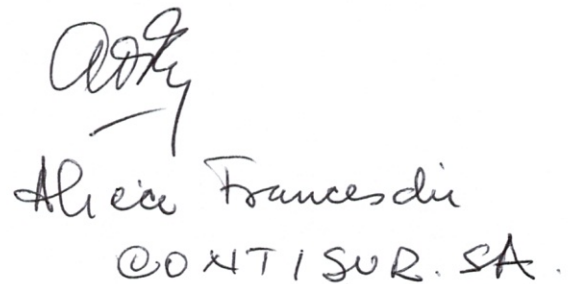 Alicia Franceschi
CONTISUR. SA.